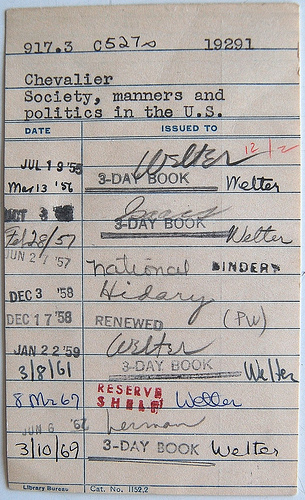 917.3 C527s 19291
Chevalier
Society, manners and
politics in the U.S.
DATE ISSUED TO
JUL 19 '55 Welter 12/2
Mar 13 '56 3-DAY BOOK Welter
OCT 3
Feb 28/57 3-DAY BOOK Welter
JUN 27 '57 national BINDERY
DEC 3 '58 Hidary
DEC 17 '58 RENEWED (PW)
JAN 22 '59 Welter
3/8/61 3-DAY BOOK Welter
8 Mr 67 RESERVE SHELF Welter
JUN 6 '67 Lerman
3/10/69 3-DAY BOOK Welter
Library Bureau Cat. No. 1152.2